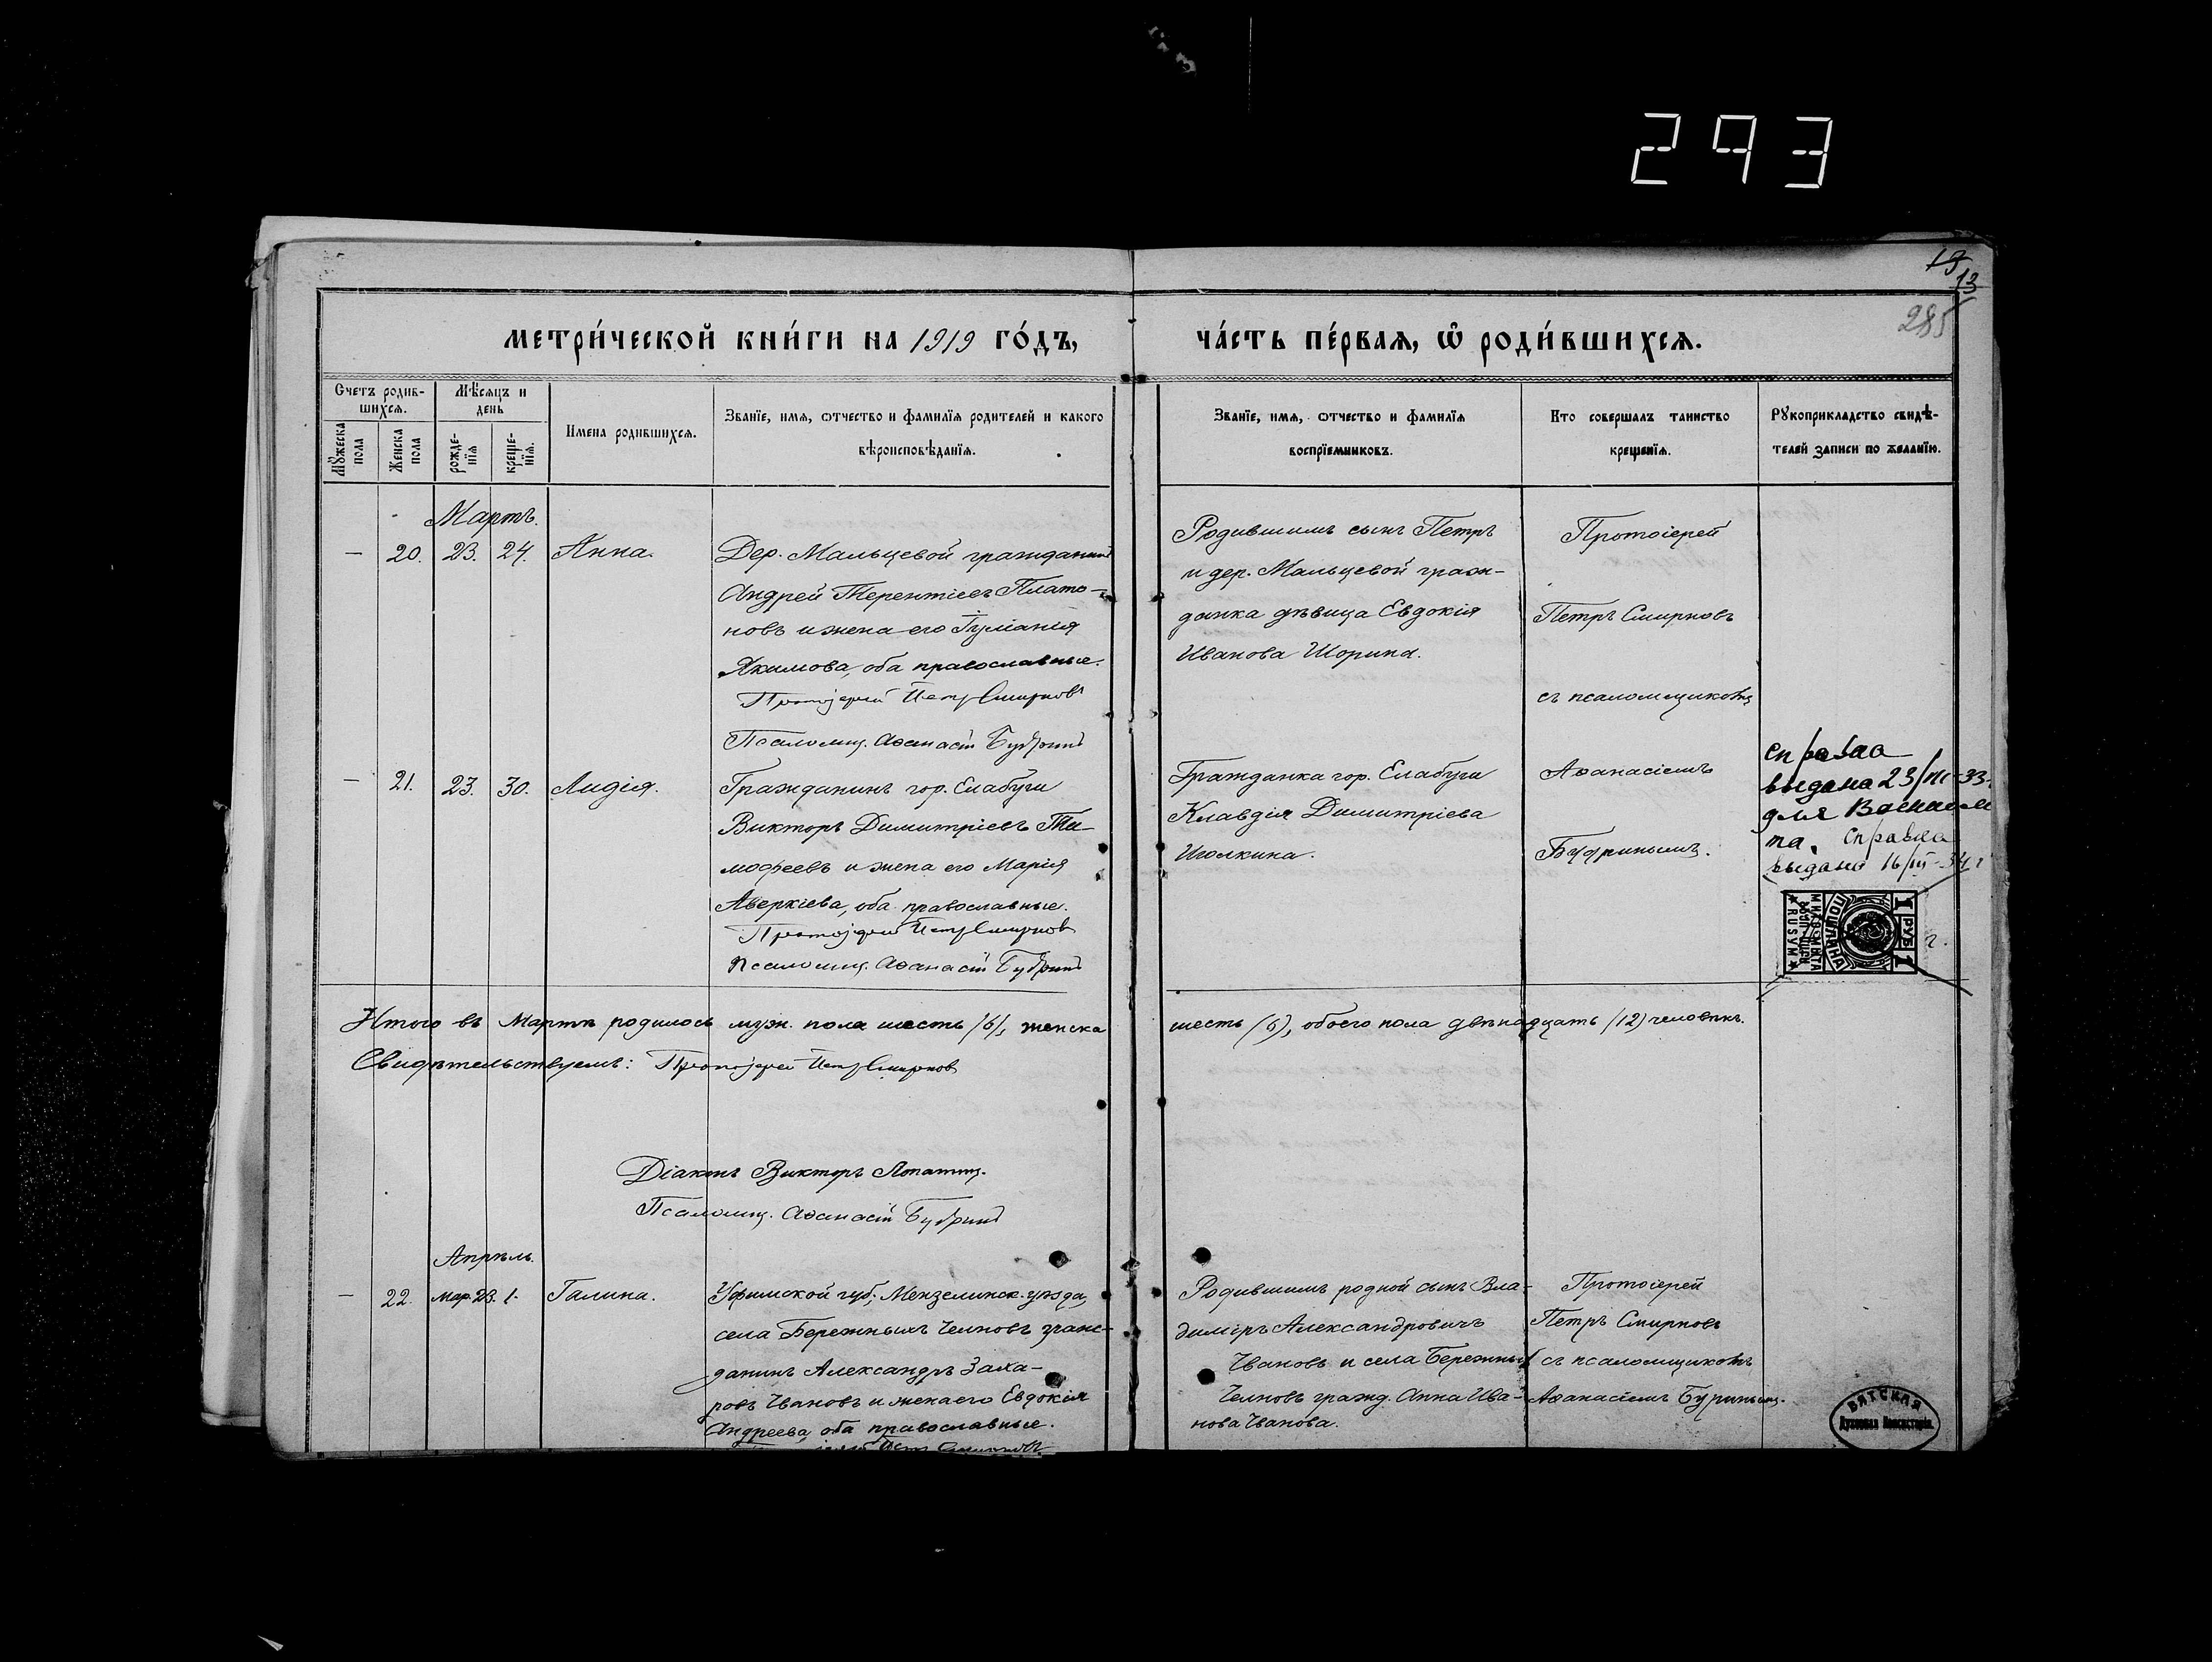 293
19
13
285
МЕТРИ́ЧЕСКОЙ КНИ́ГИ НА 1919 ГО́ДЪ,
ЧА́СТЬ ПЕ́РВАЯ, Ѽ РОДИ́ВШИХСЯ.
Счетъ родив-
шихся.
Мѣсяцъ и
день
Мꙋжеска
пола
Женска
пола
рожде-
нїя
креще-
нїя.
Имена родившихся.
Званїе, имя, ѻтчество и фамилїя родителей и какого
вѣроисповѣданїя.
Званїе, имя, ѻтчество и фамилїя
воспрїемниковъ.
Кто совершалъ таинство
крещенїя.
Рꙋкоприкладство свидѣ-
телей записи по желанїю.
Мартъ.
— 20. 23. 24. Анна.
Дер. Мальцевой гражданинъ
Андрей Терентіевъ Плато-
новъ и жена его
Якимова, оба православные.
Протоіерей Петръ Смирновъ
Псаломщ. Аѳанасій
Родившимъ сынъ Петръ
и дер. Мальцевой граж-
данка дѣвица Евдокія
Иванова Шорина.
Протоіерей
Петръ Смирновъ
съ псаломщикомъ
— 21. 23. 30. Лидія.
Гражданинъ гор. Елабуги
Викторъ Димитріевъ Ти-
мофеевъ и жена его Марія
Аверкіева, оба православные.
Протоіерей Петръ Смирновъ
Псаломщ. Аѳанасій
Гражданка гор. Елабуги
Клавдія Димитріева
Иголкина.
Аѳанасіемъ
справка
выдана 23/III-33.
для
та. Справка
выдана 16/III-34 г
1 РУБ 1
ПОШЛИНА
Итого въ Мартѣ родилось муж. пола шесть (6), женска
шесть (6), обоего пола двѣнадцать (12) человѣкъ.
Свидѣтельствуемъ: Протоіерей Петръ Смирновъ
Діаконъ Викторъ Лопатин.
Псаломщ. Аѳанасій
Апрѣль.
— 22. Мар. 23. 1. Галина.
Уфимской губ., Мензелинск. уѣзда,
села Бережныхъ Челновъ граж-
данинъ Александръ Заха-
ровъ Чвановъ и жена его Евдокія
Андреева, оба православные.
Родившимъ родной сынъ Вла-
диміръ Александровичъ
Чвановъ и села Бережныхъ
Челновъ гражд. Анна Ива-
нова Чванова.
Протоіерей
Петръ Смирновъ
съ псаломщикомъ
Аѳанасіемъ
ВЯТСКАЯ
Духовная Консисторія.